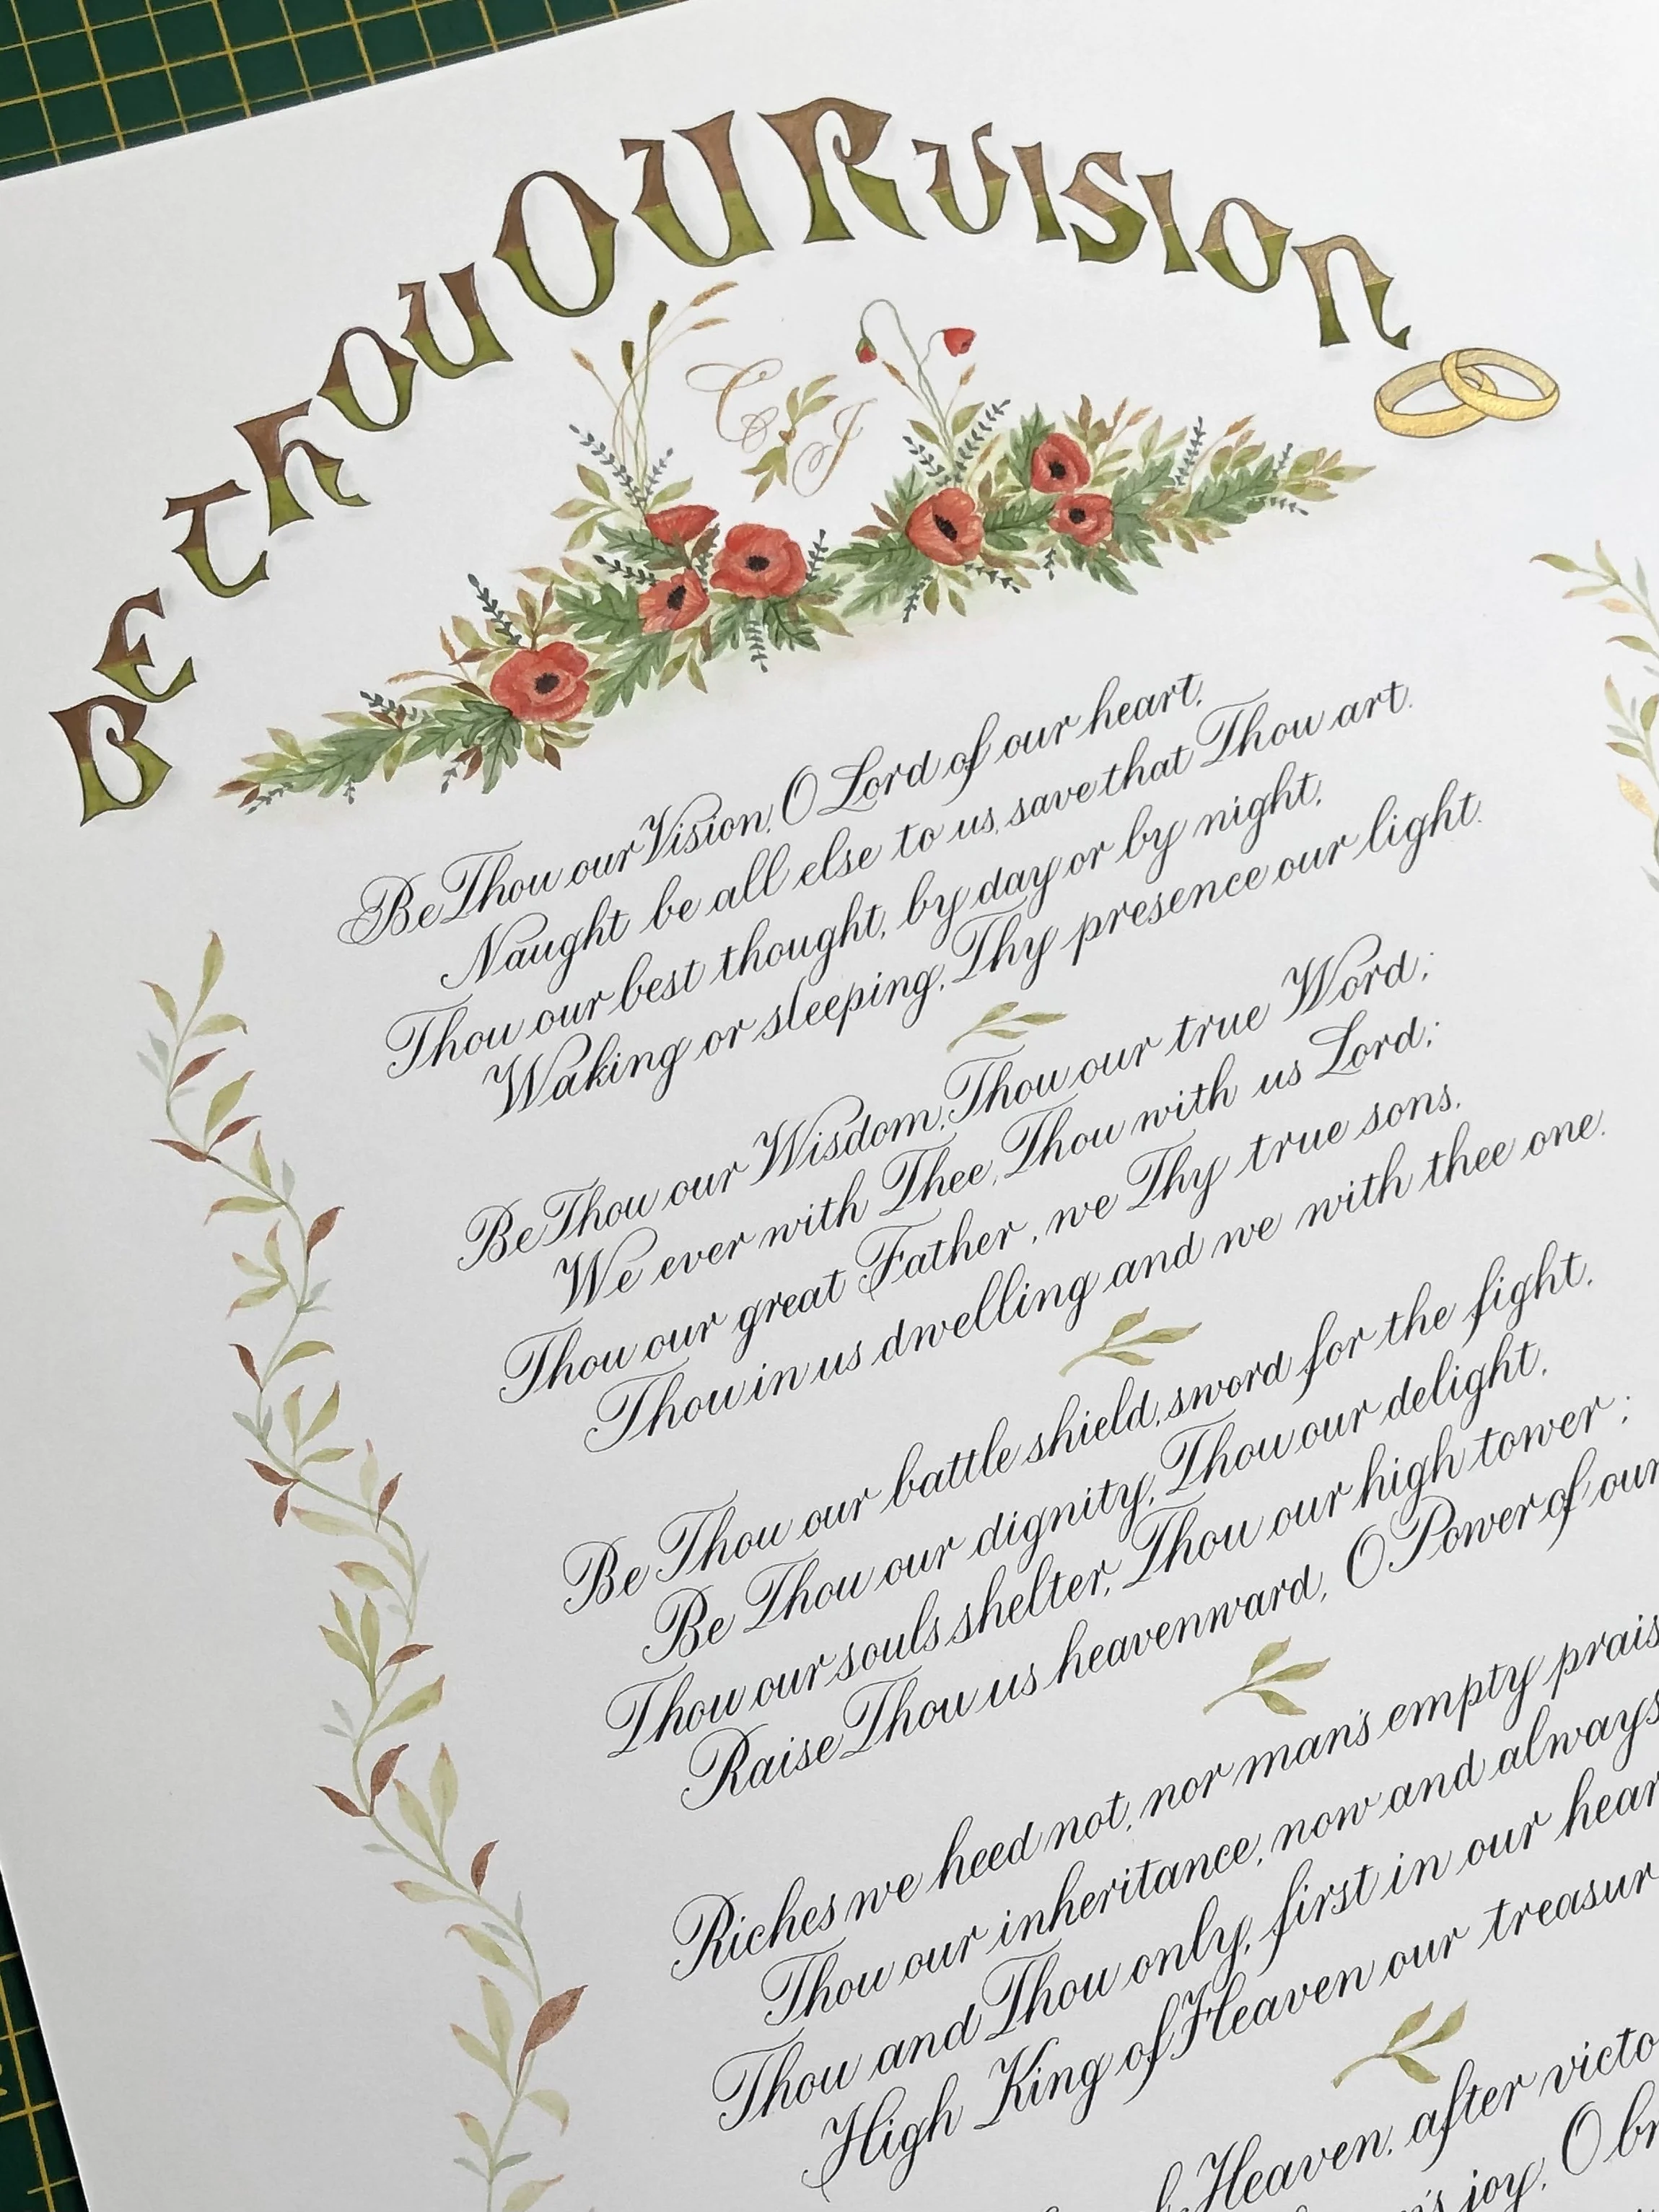 BE ThOU OUR vision
C & J
Be Thou our Vision, O Lord of our heart,
Naught be all else to us, save that Thou art.
Thou our best thought, by day or by night,
Waking or sleeping, Thy presence our light.
Be Thou our Wisdom, Thou our true Word;
We ever with Thee, Thou with us Lord;
Thou our great Father, we Thy true sons,
Thou in us dwelling and we with thee one.
Be Thou our battle shield, sword for the fight,
Be Thou our dignity, Thou our delight,
Thou our souls shelter, Thou our high tower;
Raise Thou us heavenward, O Power of our
Riches we heed not, nor man's empty
Thou our inheritance, now and always
Thou and Thou only, first in our
High King of Heaven our
Heaven, after
joy, O